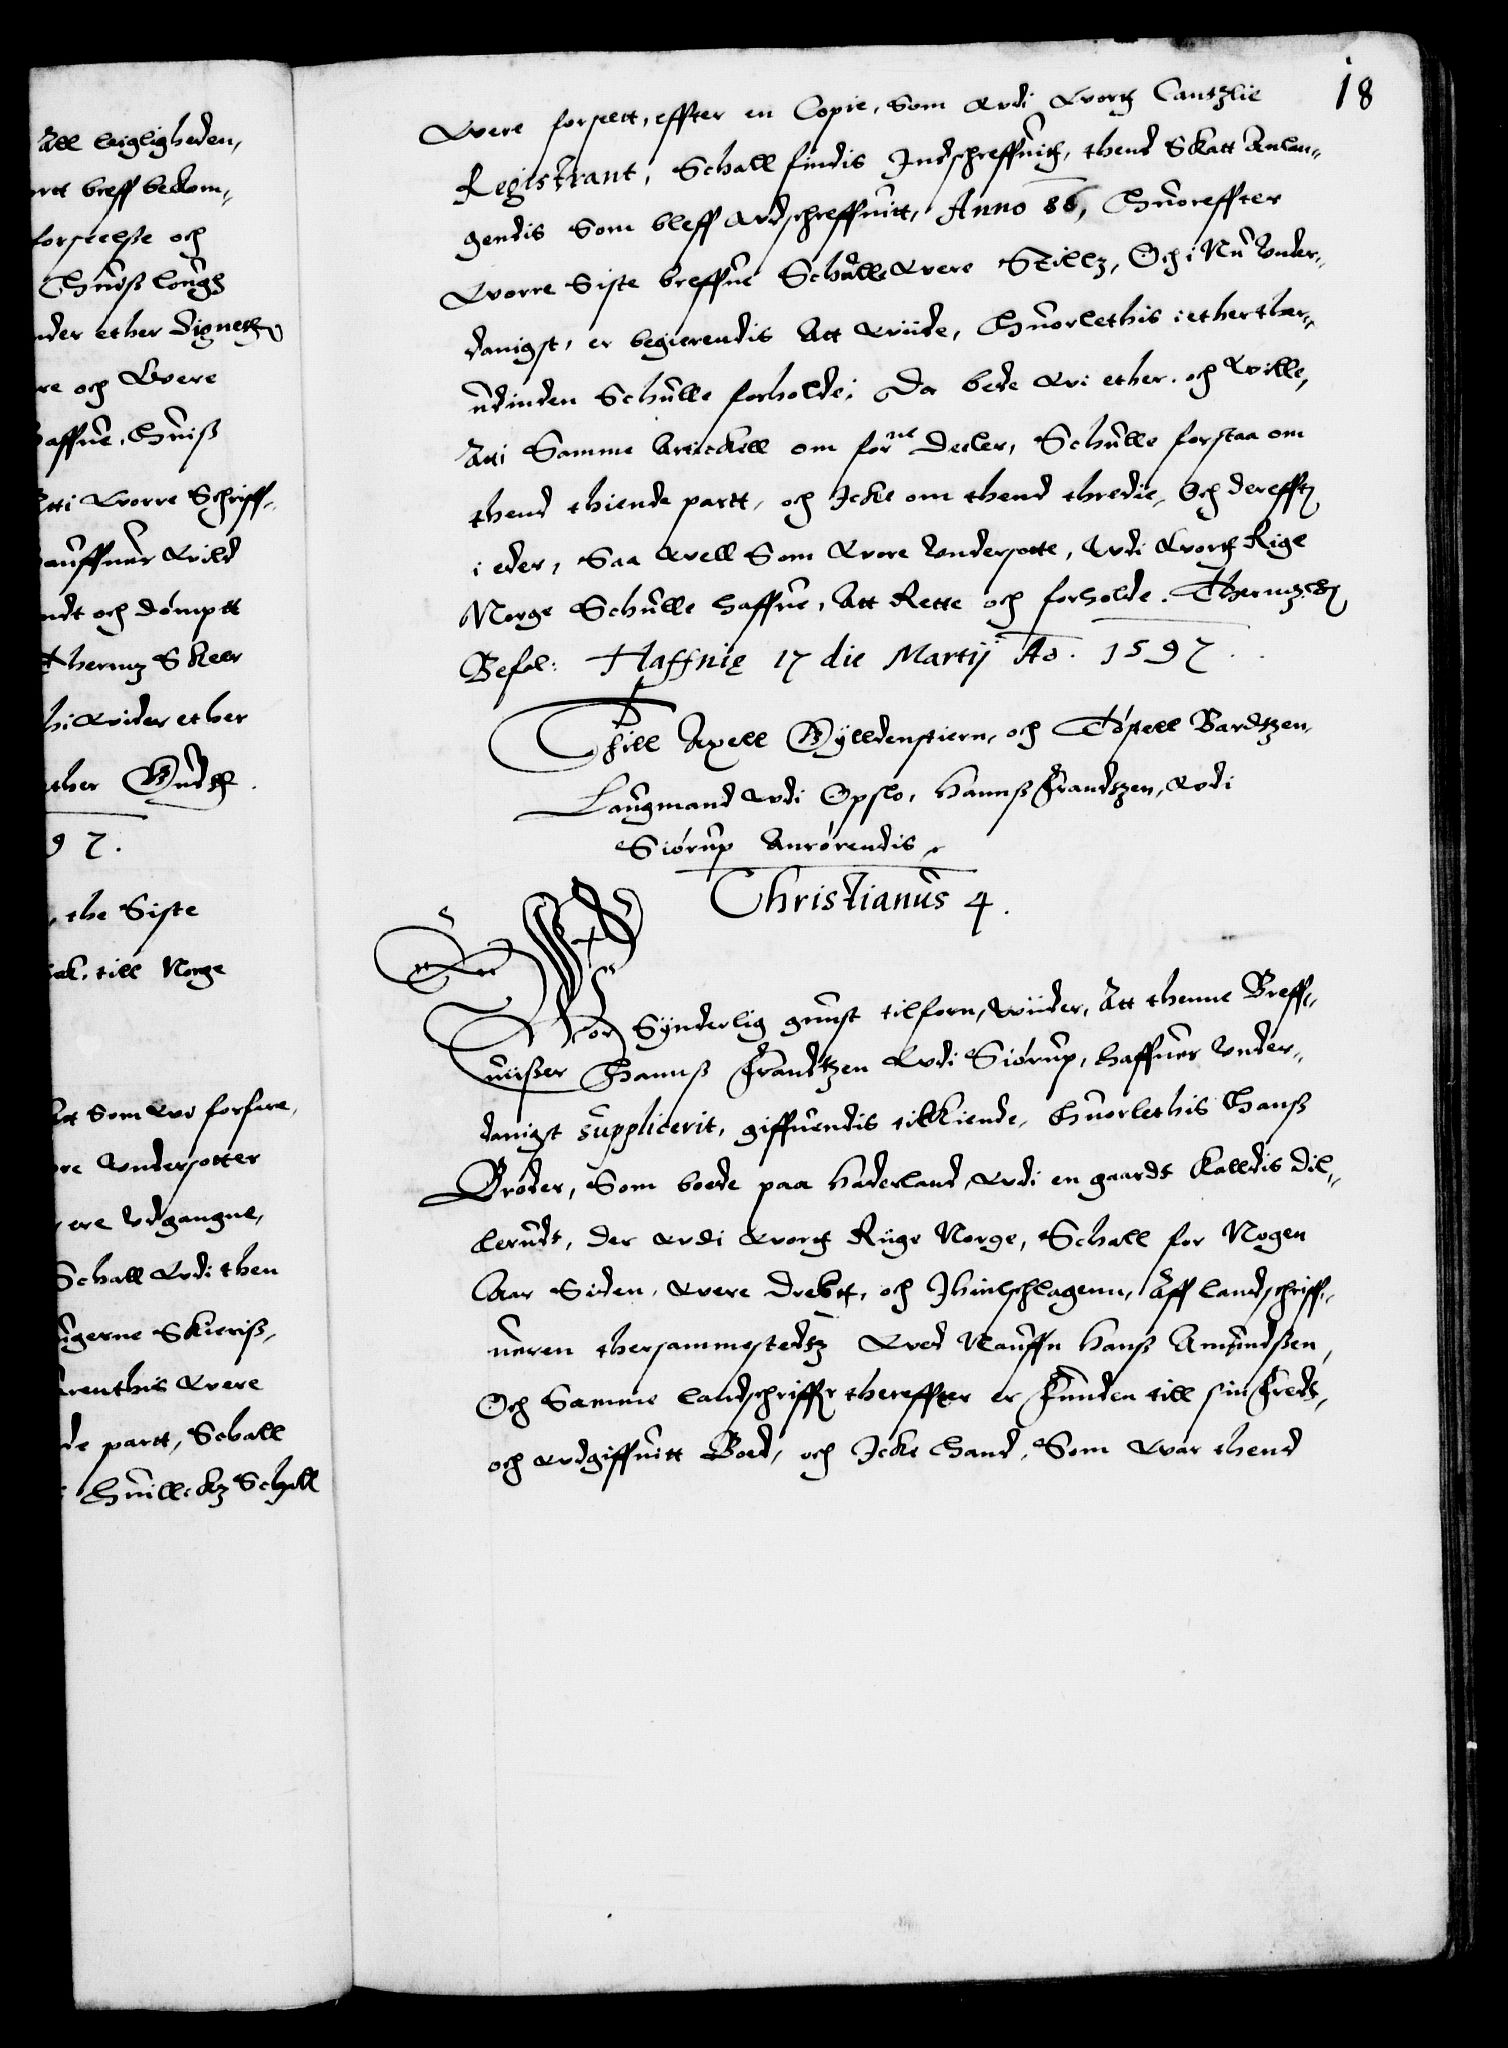 All leigligheden,
breff bekom-
forseelße och
Huiß lougs
ether
re och Were
haffue, Huiß
Atti Worre Schriff-
Wild
och dømptt
Thermz Skeer
Wider ether
ether Gudtz.
97.
, the Siste
till Norge
Som Wo forfare,
Undersotter
ere Udgangne,
Schall Udi then
Skieriß,
Were
de partt, Schall
Huilckz Schall
18
Were forseett, effter en Copie, Som Udi Wortz Cantzlie
Registrant, Schall findis Indschreffuitz, thend Skatt Anlan-
gendis Som bleff Udschreffuitt, Anno 86, Huoreffter
Worre Siste breffue Schulle Were Stillz, Och i Nu Under-
danigst, er begierendis Att Wiide, Huorlethis i ether ther-
udinden Schulle forholde; Da bede Wi ether. och Wille,
Atti Samme Artickell om forne Deeler, Schulle forstaa om
thend thiende partt, och Icke om thend thredie, Och derefftr
i eder, Saa Well Som Wore Undersotte, Udi Wortz Rige
Norge Schulle haffue, Att Rette och forholde. Thermz
Befal: Haffnię 17 die Martij Ao. 1597.
Thill Axell Gylldenstiern, och Bardtzen,
Laugmand Udi Opslo, Hannß Frandtzen, Udi
Siørup Anrørendis
Christianus 4.
Wor Synderlig gunst tilforn, Wiider, Att thenne Breff-
uiißer Hannß Frandtzen Udi Siørup, haffuer Under-
danigst supplicerit, giffuendis tilkiende, Huorlethis Hanß
Broder, Som boede paa Haderland, Udi en gaardt Kalldis Dil-
lerudt, der Udi Wortz Riige Norge, Schall for Nogen
Aar Siden, Were Drebt, och Ihielschlagenn, Aff landschriff-
ueren thersammestedtz Wed Nauffn Hanß Amundßen,
Och Samme landschriffr thereffter er Funden till sin Fredt,
och Udgiffuitt Boed, och Icke Hand, Som War thend